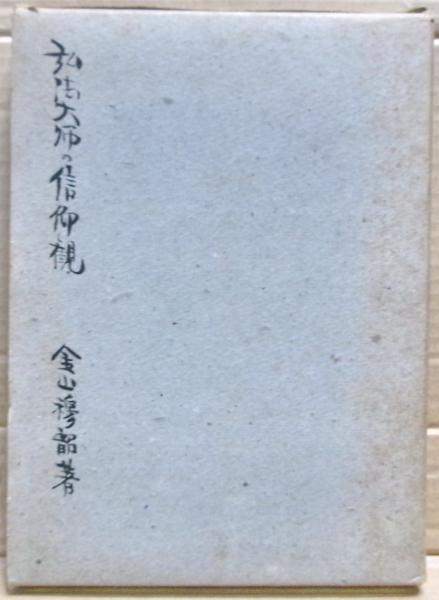 弘法大師の信仰観
金山穆韶著